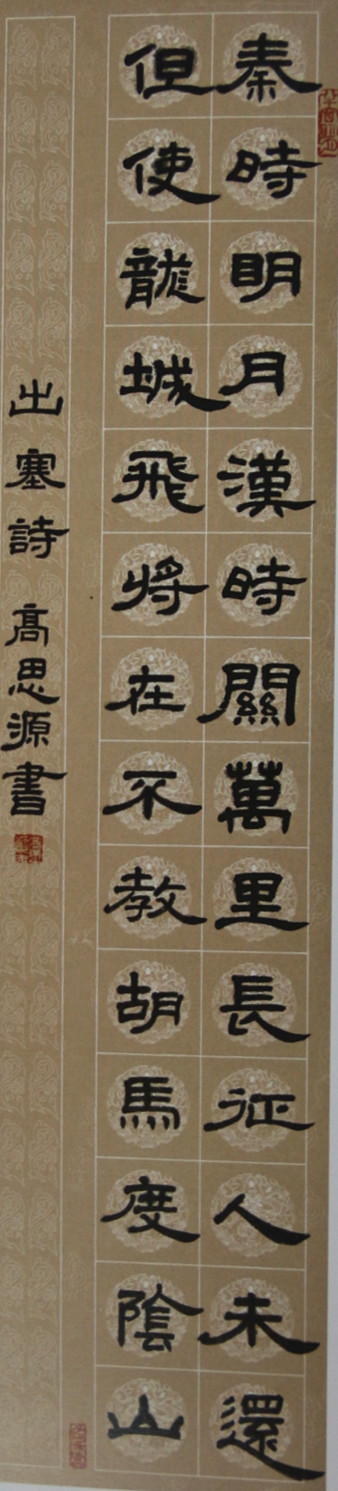 秦時明月漢時關萬里長征人未還
但使龍城飛將在不教胡馬度陰山
出塞詩 高思源書